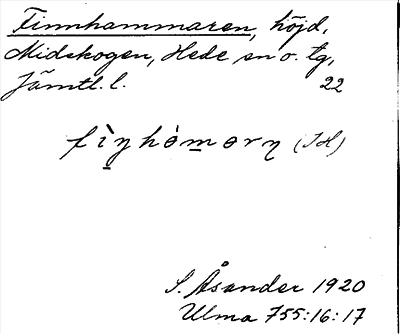 Finnhammaren, höjd,
Midskogen, Hede sn o. tg,
Jämtl. l. 22
fìŋhòmɵrŋ (JH)
S. Åsander 1920
Ulma 755:16:17